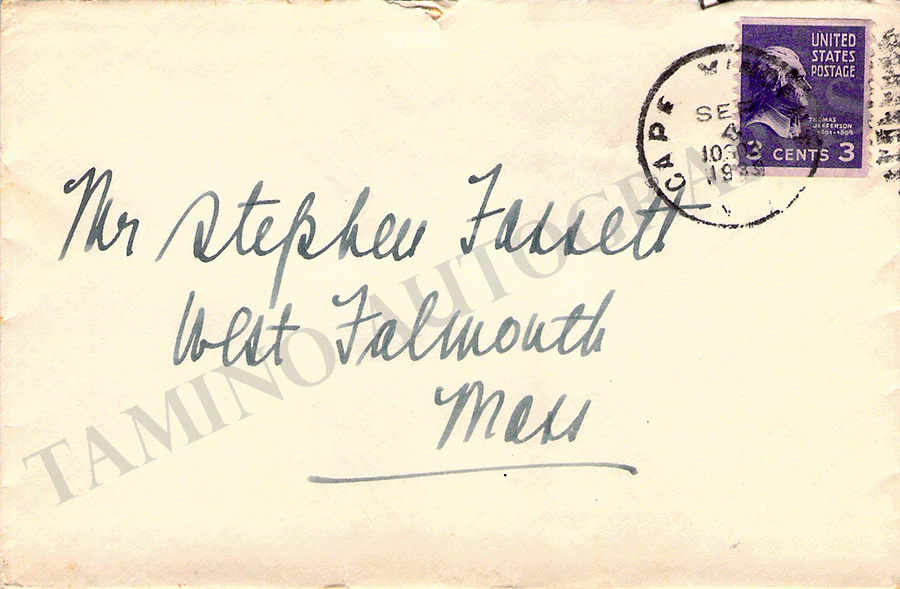 UNITED
STATES
POSTAGE
THOMAS
JEFFERSON
1801-1809
3 CENTS 3
CAPE
SEP
4
Mr Stephen Fassett
West Falmouth
Mass
TAMINO AUTOGRAPHS